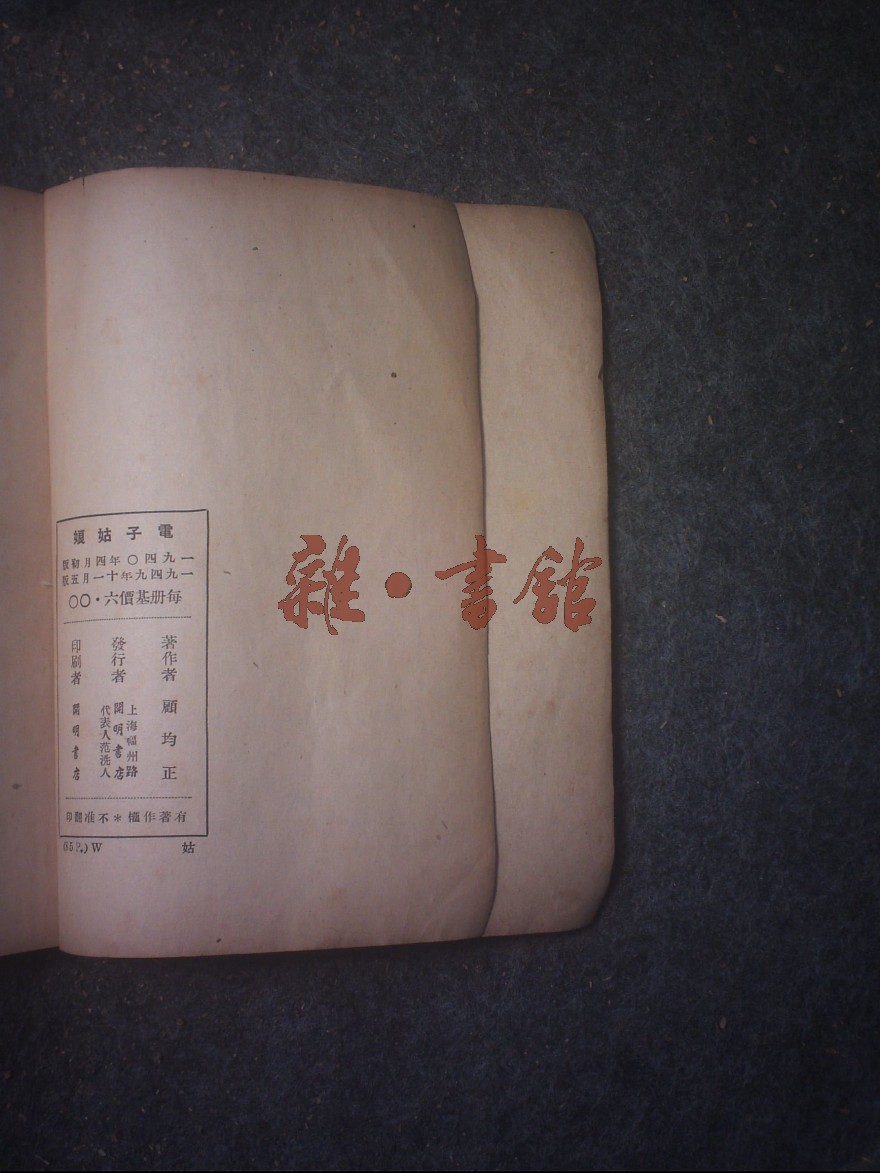 電子姑娘
一九四〇年四月初版
一九四九年十一月五版
每册基價六・〇〇
著作者 顧均正
發行者 上海福州路 開明書店 代表人范洗人
印刷者 開明書店
有著作權＊不准翻印
姑
(65P.)W
雜・書館